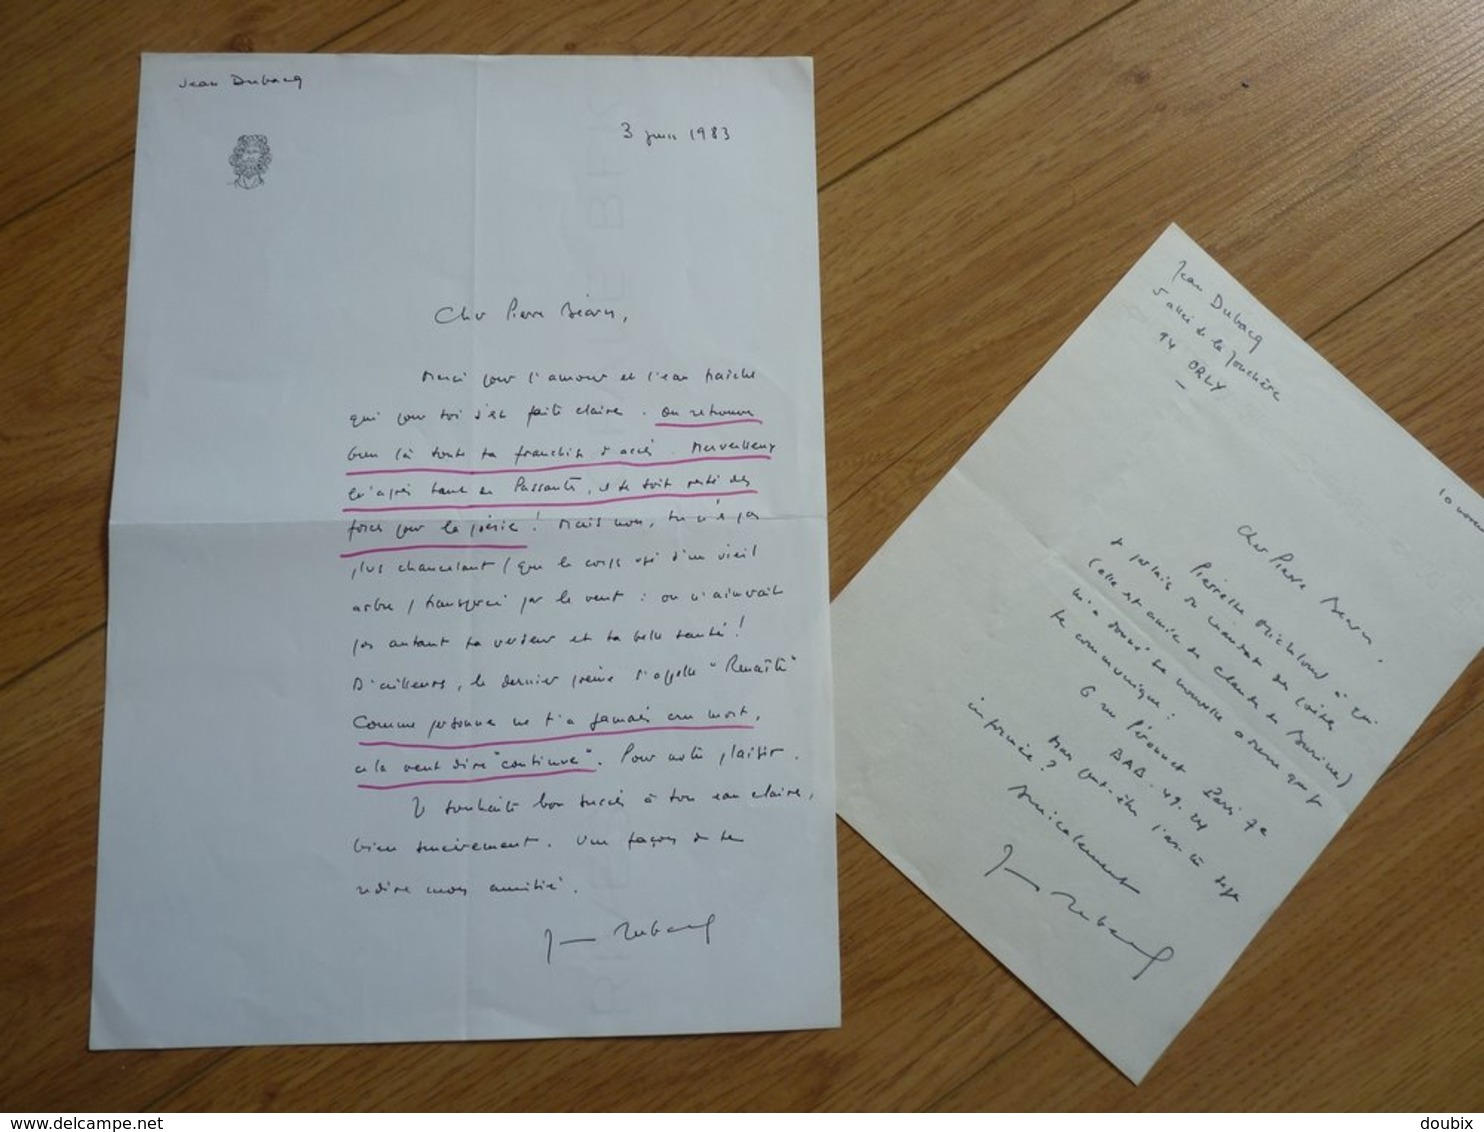 Jean Dubacq
3 juin 1983
Cher Pierre Béarn,
Merci pour l'amour et l'eau fraîche
qui pour toi s'est faite claire. On retrouve
bien là toute ta franchise d'accès. Merveilleux
qu'après tant de Passantes, il te soit resté des
forces pour la poésie ! Mais non, tu n'es pas
plus chancelant (que le corps usé d'un vieil
arbre) transpercé par le vent : on n'aimerait
pas autant ta verdeur et ta belle santé !
D'ailleurs, le dernier poème s'appelle "Renaître"
Comme personne ne t'a jamais cru mort,
cela veut dire "continue". Pour notre plaisir.
Je souhaite bon succès à ton eau claire,
bien sincèrement. Une façon de te
redire mon amitié.
Jean Dubacq
Jean Dubacq
5 allée de la Jonchère
94 ORLY
10
Cher Pierre Béarn,
Pierrette Micheloud à qui
je parlais du mandat des poètes
(elle est amie de Claude de Burine)
m'a donné sa nouvelle adresse que je
te communique :
6 rue Péronnet Paris 7e
BAB. 49.24
Mais peut-être l'as-tu déjà
informée ?
Amicalement
Jean Dubacq
www.delcampe.net
doubix